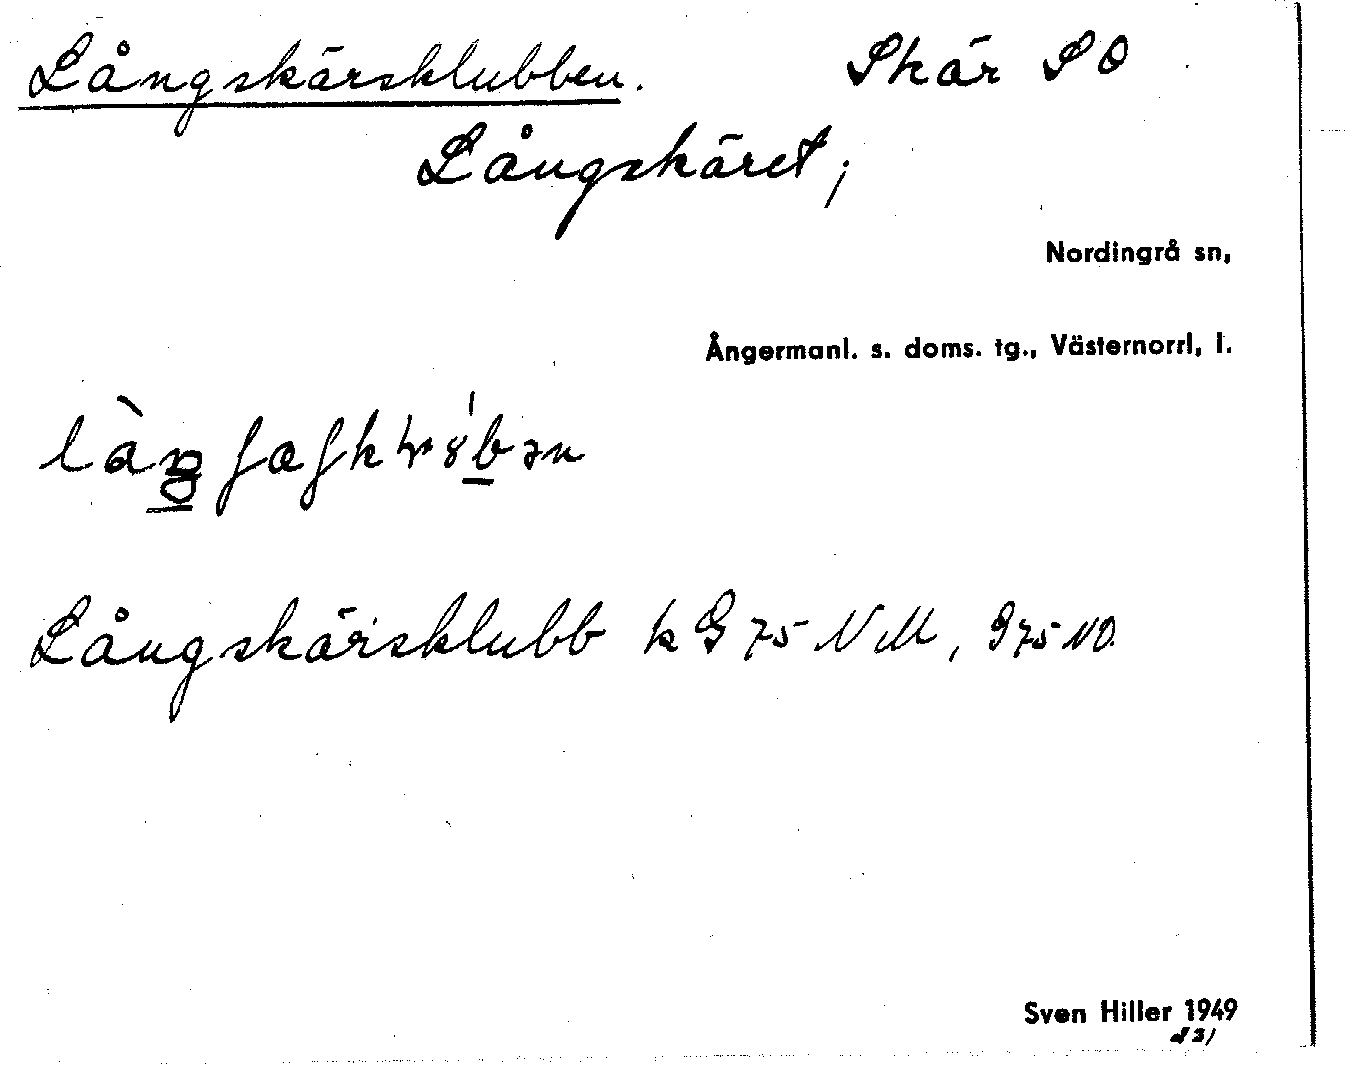 Långskärsklubben. Skär SO
Långskäret;
Nordingrå sn,
Ångermanl. s. doms. tg., Västernorrl, l.
Långskärsklubb k G 75 NM, 975 NO.
Sven Hiller 1949